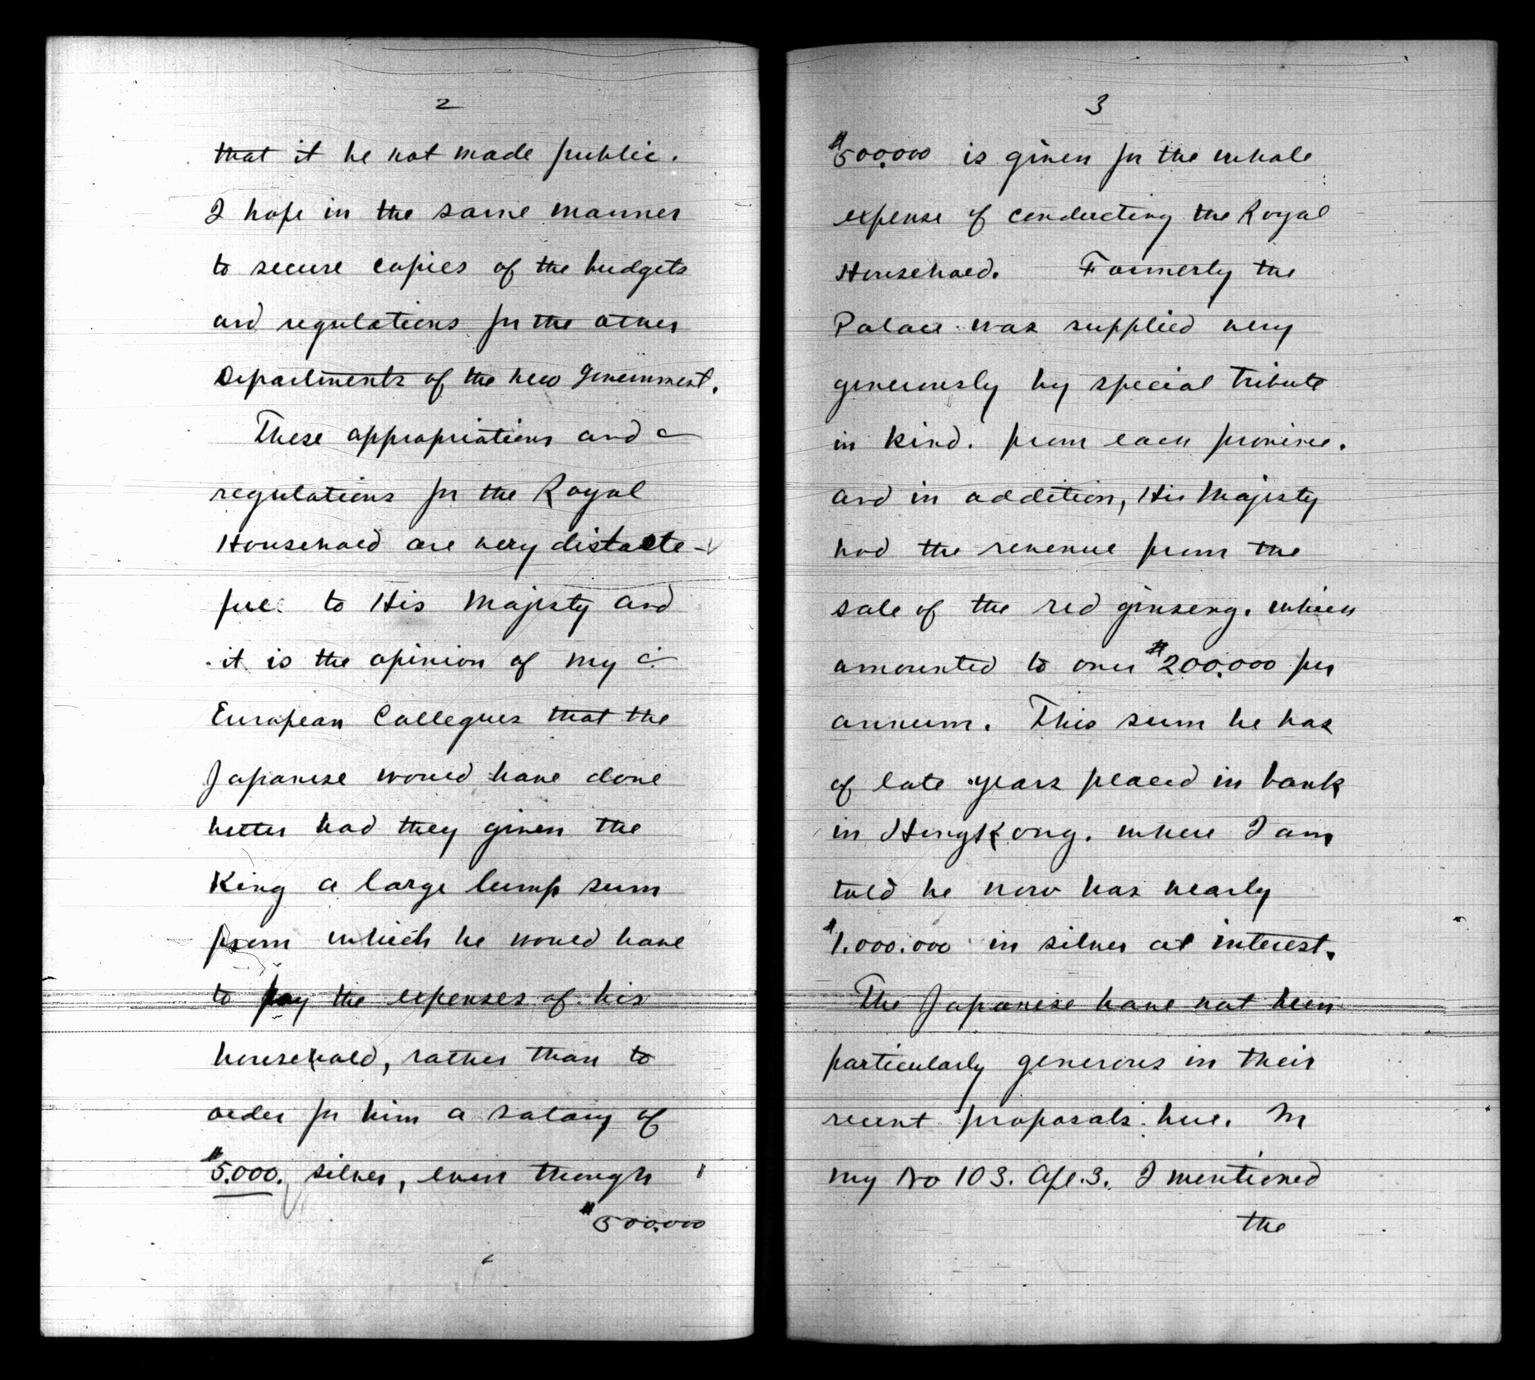 2
that it be not made public.
I hope in the same manner
to secure copies of the budgets
and regulations for the other
Departments of the new Government.
These appropriations and
regulations for the Royal
Household are very distaste-
ful to His Majesty and
it is the opinion of my
European Collegues that the
Japanese would have done
better had they given the
King a large lump sum
from which he would have
to pay the expenses of his
household, rather than to
order for him a salary of
$5.000. silver, even though
$500.000
3
$500.000 is given for the whole
expense of conducting the Royal
Household. Formerly the
Palace was supplied very
generously by special tribute
in kind. from each province.
and in addition, His Majesty
had the revenue from the
sale of the red ginseng. which
amounted to over $200.000 per
annum. This sum he has
of late years placed in bank
in HongKong. where I am
told he now has nearly
$1.000.000 in silver at interest.
The Japanese have not been
particularly generous in their
recent proposals here. In
my No 103. Apl. 3. I mentioned
the